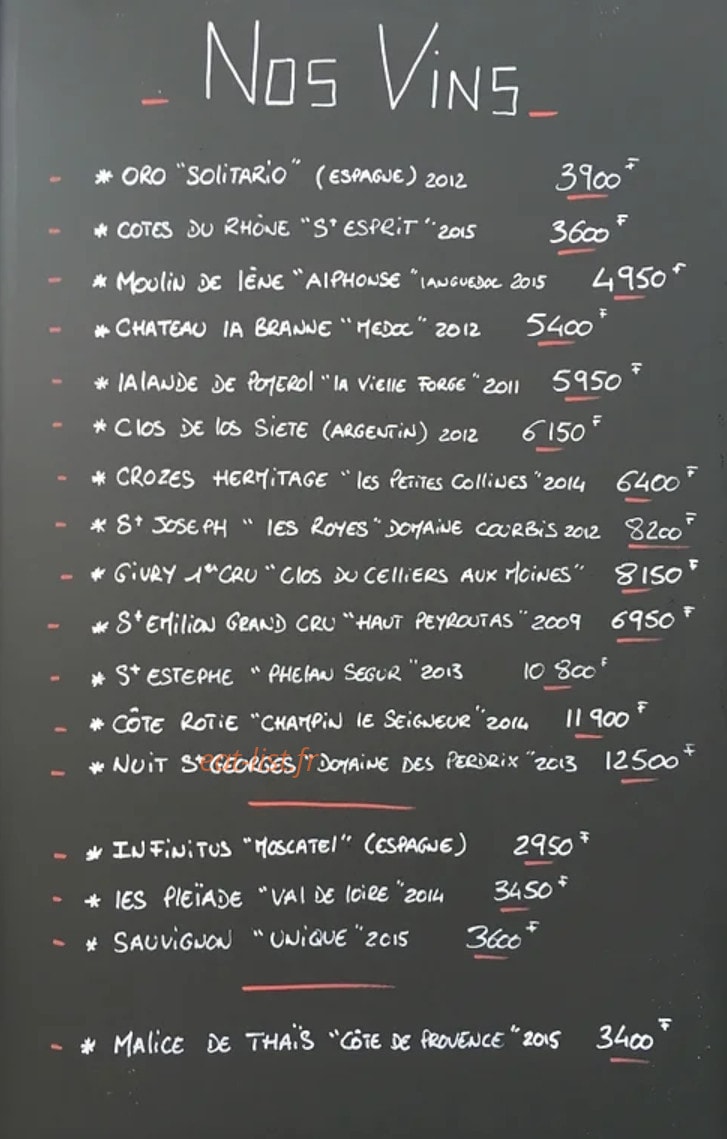 Nos Vins
- * ORO "SOLITARIO" (ESPAGNE) 2012 3900 F
- * COTES DU RHÔNE "St ESPRIT" 2015 3600 F
- * MOULIN DE LÈNE "ALPHONSE" LANGUEDOC 2015 4950 F
- * CHATEAU LA BRANNE "MEDOC" 2012 5400 F
- * LALANDE DE POMEROL "LA VIELLE FORGE" 2011 5950 F
- * CLOS DE LOS SIETE (ARGENTIN) 2012 6150 F
- * CROZES HERMITAGE "LES PETITES COLLINES" 2014 6400 F
- * St JOSEPH "LES ROYES" DOMAINE COURBIS 2012 8200 F
- * GIVRY 1er CRU "CLOS DU CELLIERS AUX MOINES" 8150 F
- * St EMILION GRAND CRU "HAUT PEYROUTAS" 2009 6950 F
- * St ESTEPHE "PHELAN SEGUR" 2013 10 800 F
- * CÔTE ROTIE "CHAMPIN LE SEIGNEUR" 2014 11 900 F
- * NUIT St GEORGES "DOMAINE DES PERDRIX" 2013 12500 F
eat-list.fr
- * INFINITUS "MOSCATEL" (ESPAGNE) 2950 F
- * LES PLEÏADE "VAL DE LOIRE" 2014 3450 F
- * SAUVIGNON "UNIQUE" 2015 3600 F
- * MALICE DE THAÏS "CÔTE DE PROVENCE" 2015 3400 F